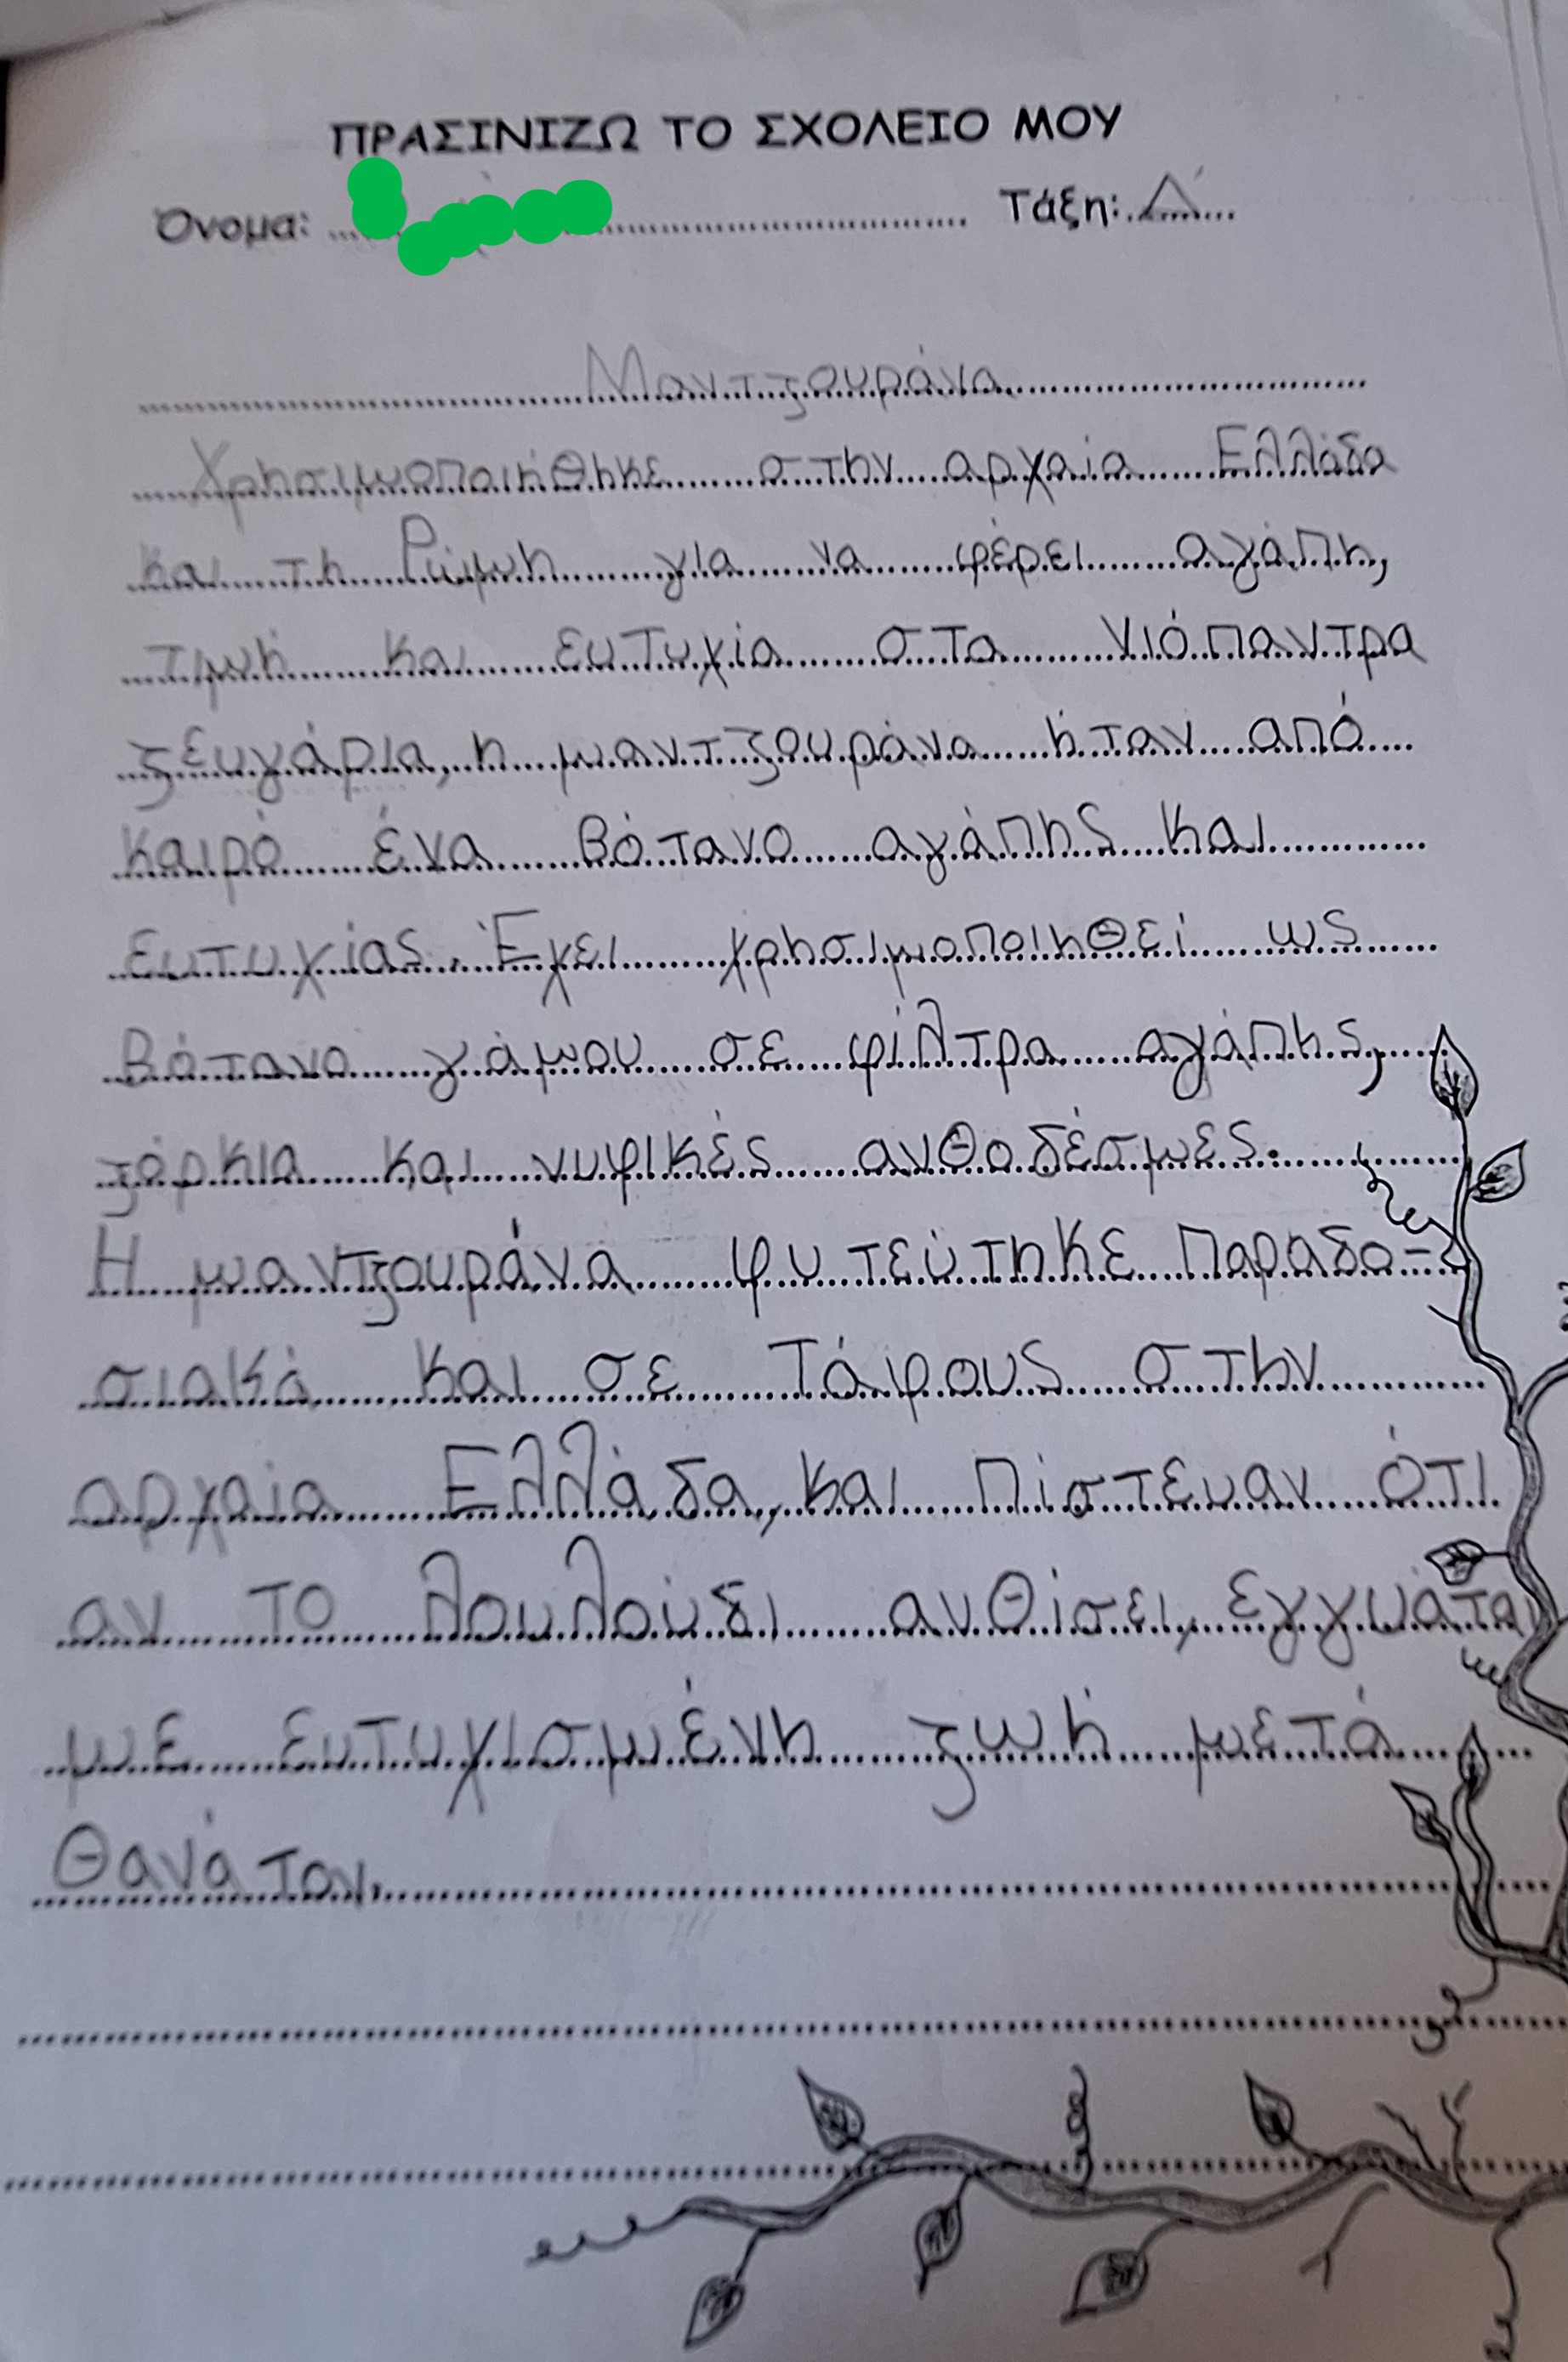 ΠΡΑΣΙΝΙΖΩ ΤΟ ΣΧΟΛΕΙΟ ΜΟΥ
Όνομα: Τάξη: Δ΄
Μαντζουράνα
Χρησιμοποιήθηκε στην αρχαία Ελλάδα
και τη Ρώμη για να φέρει αγάπη,
τιμή και ευτυχία στα νιόπαντρα
ζευγάρια, η μαντζουράνα ήταν από
καιρό ένα βότανο αγάπης και
ευτυχίας. Έχει χρησιμοποιηθεί ως
βότανο γάμου σε φίλτρα αγάπης,
ξόρκια και νυφικές ανθοδέσμες.
Η μαντζουράνα φυτεύτηκε παραδο-
σιακά και σε Τάφους στην
αρχαία Ελλάδα, και πίστευαν ότι
αν το λουλούδι ανθίσει, εγγυάται
με ευτυχισμένη ζωή μετά
θάνατον.